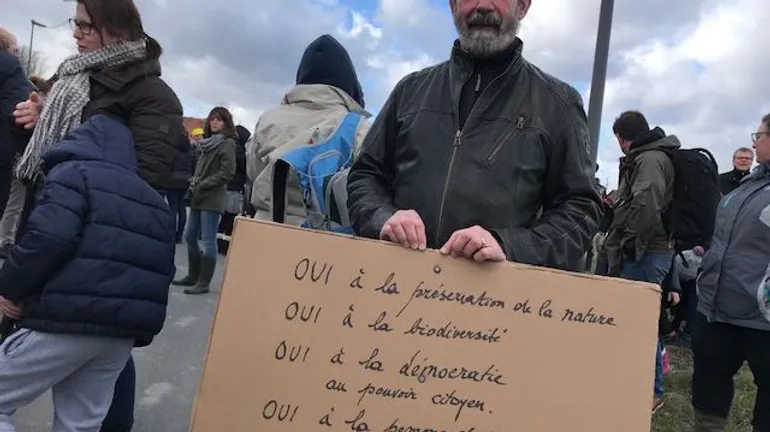 OUI à la préservation de la nature
OUI à la biodiversité
OUI à la démocratie
au pouvoir citoyen.
OUI à la